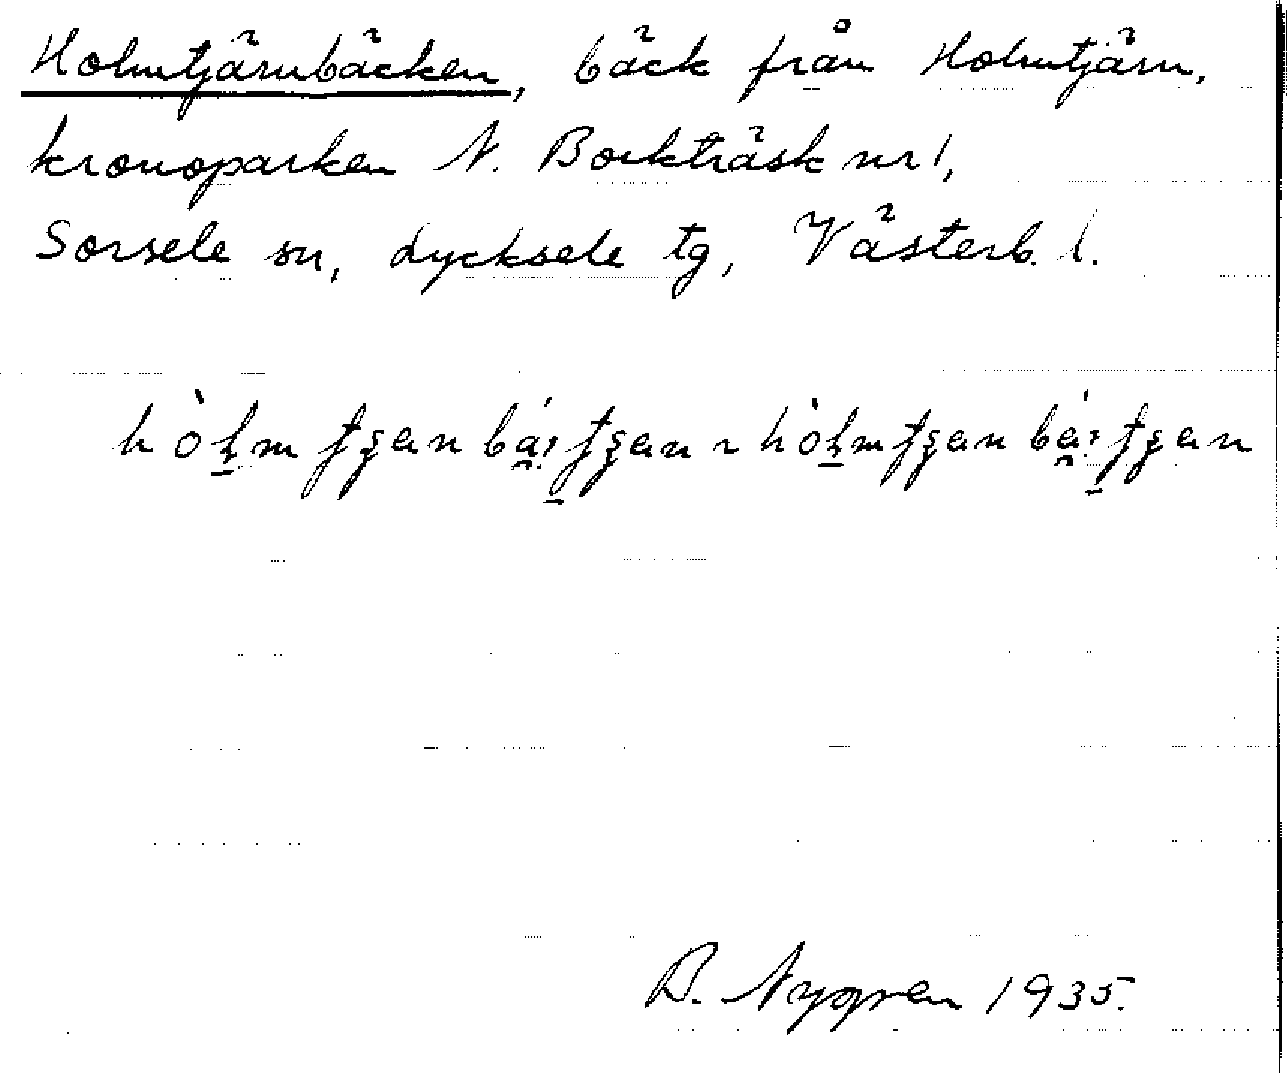 Holmtjärnbäcken, bäck från Holmtjärn,
kronoparken N. Bockträsk nr 1,
Sorsele sn, Lycksele tg, Västerb. l.
B. Nygren 1935.